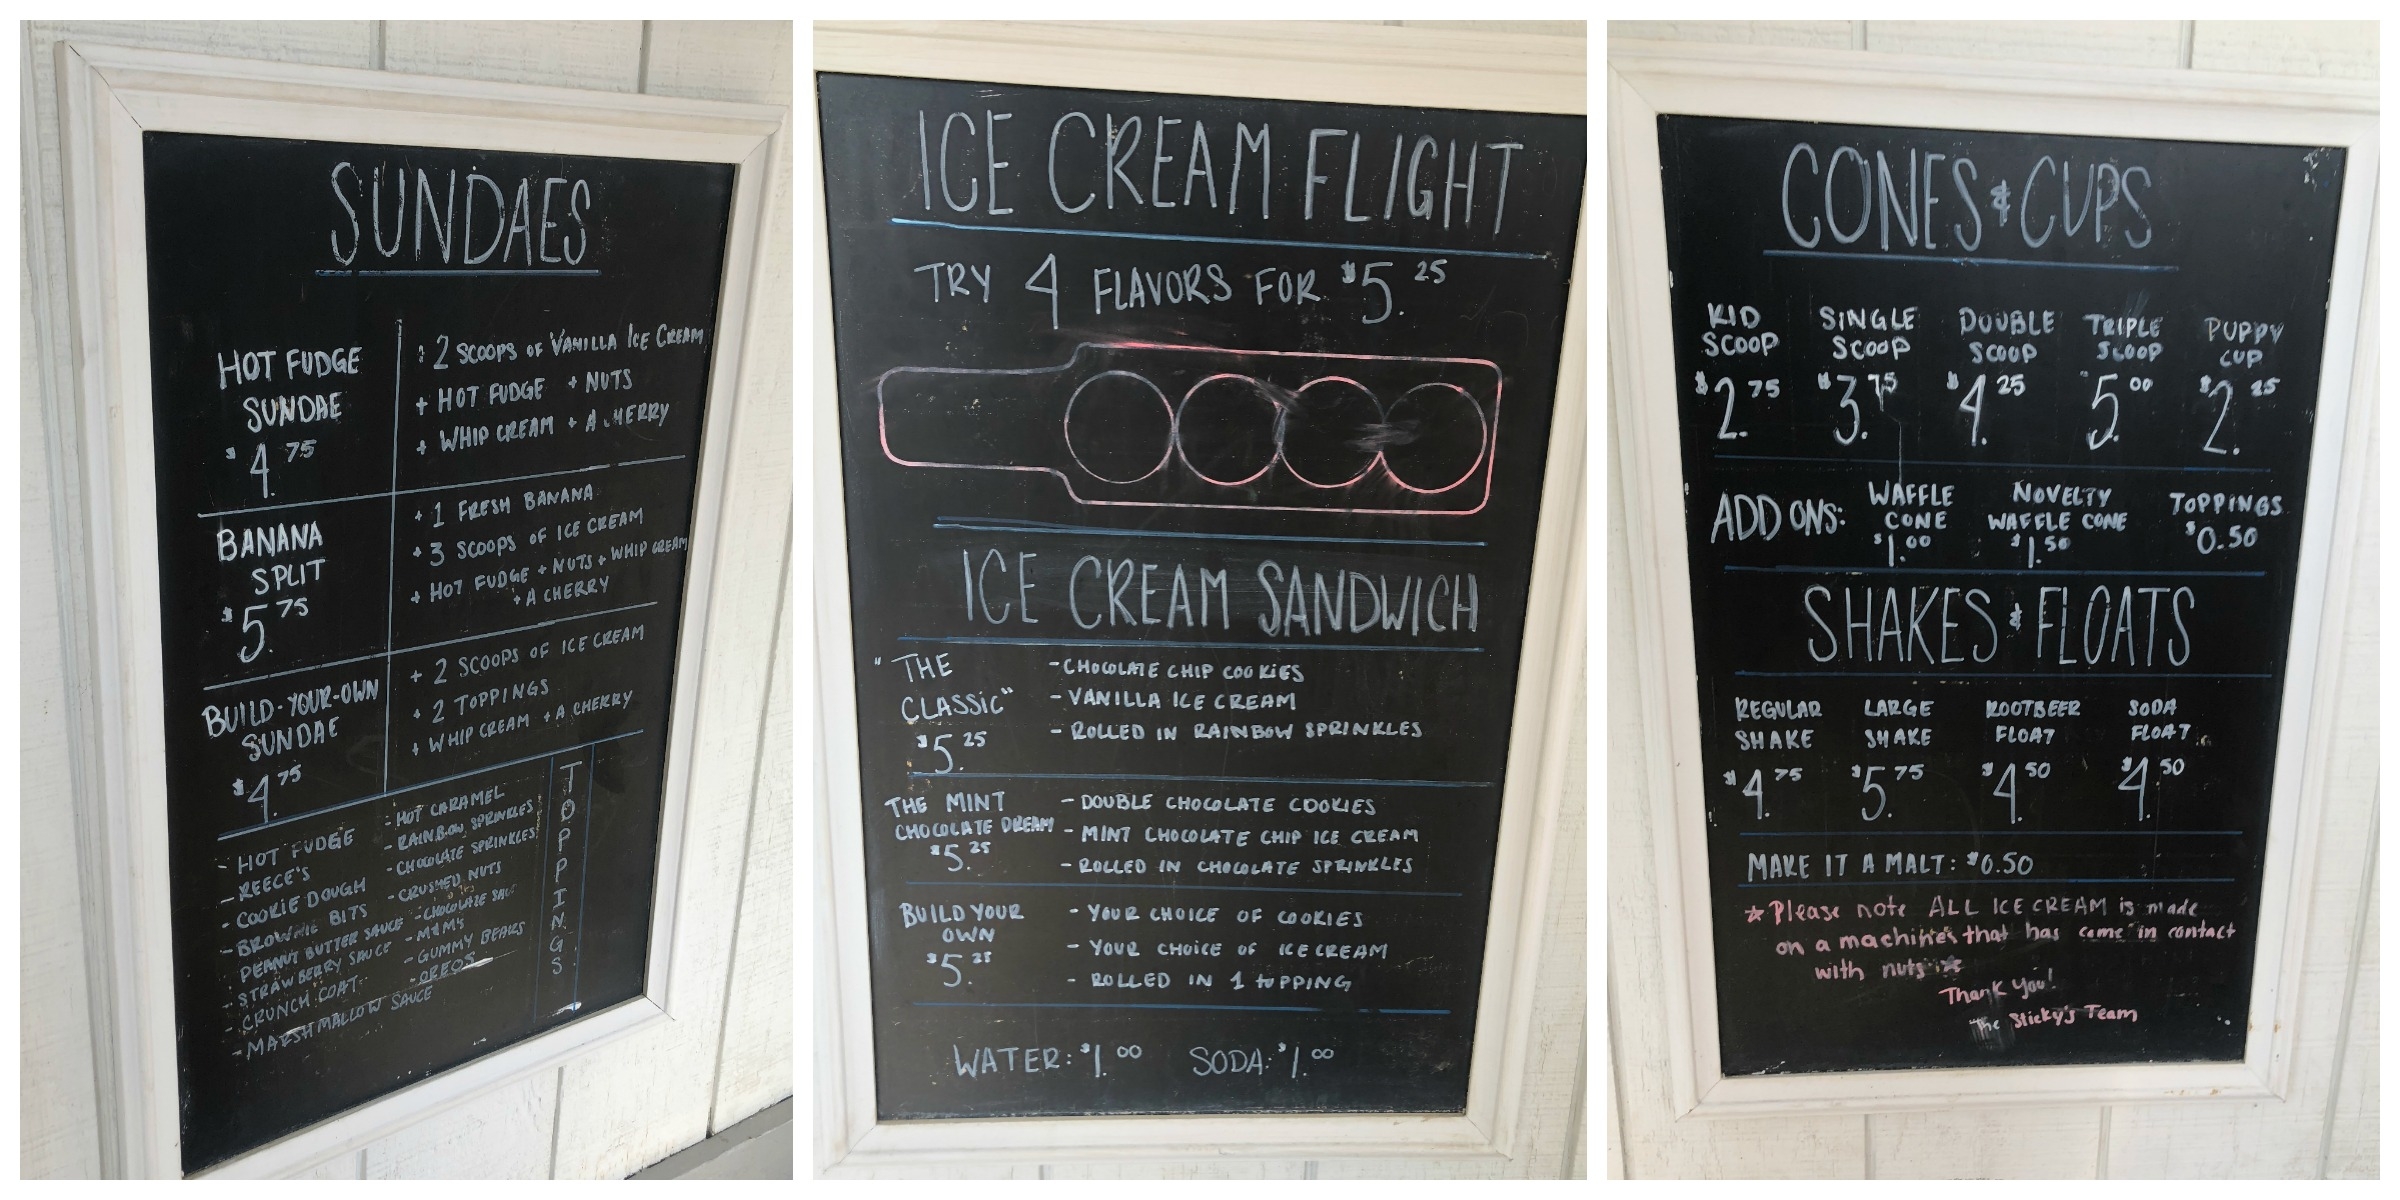 SUNDAES
HOT FUDGE
SUNDAE
$4.75
+ 2 SCOOPS OF VANILLA ICE CREAM
+ HOT FUDGE + NUTS
+ WHIP CREAM + A CHERRY
BANANA
SPLIT
$5.75
+ 1 FRESH BANANA
+ 3 SCOOPS OF ICE CREAM
+ HOT FUDGE + NUTS + WHIP CREAM
+ A CHERRY
BUILD-YOUR-OWN
SUNDAE
$4.75
+ 2 SCOOPS OF ICE CREAM
+ 2 TOPPINGS
+ WHIP CREAM + A CHERRY
TOPPINGS
- HOT FUDGE
- REECE'S
- COOKIE DOUGH
- BROWNIE BITS
- PEANUT BUTTER SAUCE
- STRAWBERRY SAUCE
- CRUNCH COAT
- MARSHMALLOW SAUCE
- HOT CARAMEL
- RAINBOW SPRINKLES
- CHOCOLATE SPRINKLES
- CRUSHED NUTS
- CHOCOLATE
- M&M'S
- GUMMY BEARS
- OREOS
ICE CREAM FLIGHT
TRY 4 FLAVORS FOR $5.25
ICE CREAM SANDWICH
"THE
CLASSIC"
$5.25
- CHOCOLATE CHIP COOKIES
- VANILLA ICE CREAM
- ROLLED IN RAINBOW SPRINKLES
THE MINT
CHOCOLATE DREAM
$5.25
- DOUBLE CHOCOLATE COOKIES
- MINT CHOCOLATE CHIP ICE CREAM
- ROLLED IN CHOCOLATE SPRINKLES
BUILD YOUR
OWN
$5.25
- YOUR CHOICE OF COOKIES
- YOUR CHOICE OF ICE CREAM
- ROLLED IN 1 tOPPING
WATER: $1.00 SODA: $1.00
CONES & CUPS
KID
SCOOP
$2.75
SINGLE
SCOOP
$3.75
DOUBLE
SCOOP
$4.25
TRIPLE
SCOOP
$5.00
PUPPY
CUP
$2.25
ADD ONS:
WAFFLE
CONE
$1.00
NOVELTY
WAFFLE CONE
$1.50
TOPPINGS
$0.50
SHAKES & FLOATS
REGULAR
SHAKE
$4.75
LARGE
SHAKE
$5.75
ROOTBEER
FLOAT
$4.50
SODA
FLOAT
$4.50
MAKE IT A MALT: $0.50
☆ Please note ALL ICE CREAM is made
on a machines that has come in contact
with nuts ☆
Thank You!
The Slicky's Team